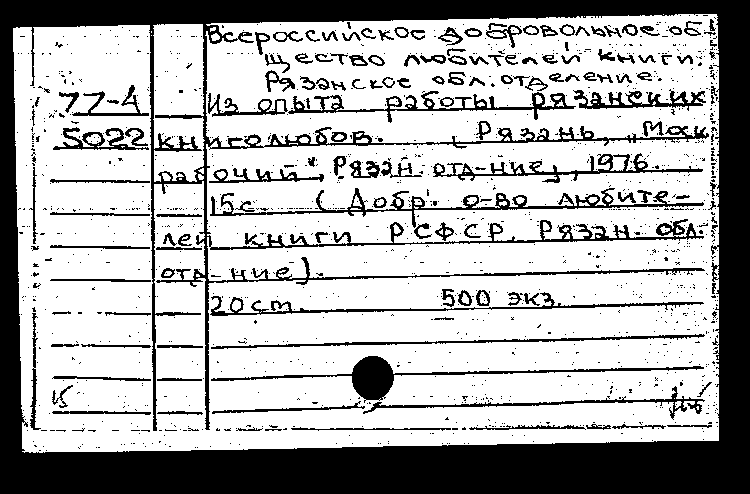 Всероссийское добровольное об
щество любителей книги.
Рязанское обл. отделение.
77-4 Из опыта работы рязанских
5022 книголюбов. [Рязань, „Моск
рабочий“, Рязан. отд-ние], 1976.
15с. (Добр. о-во любите-
лей книги РСФСР. Рязан. обл.
отд-ние).
20см. 500 экз.
15